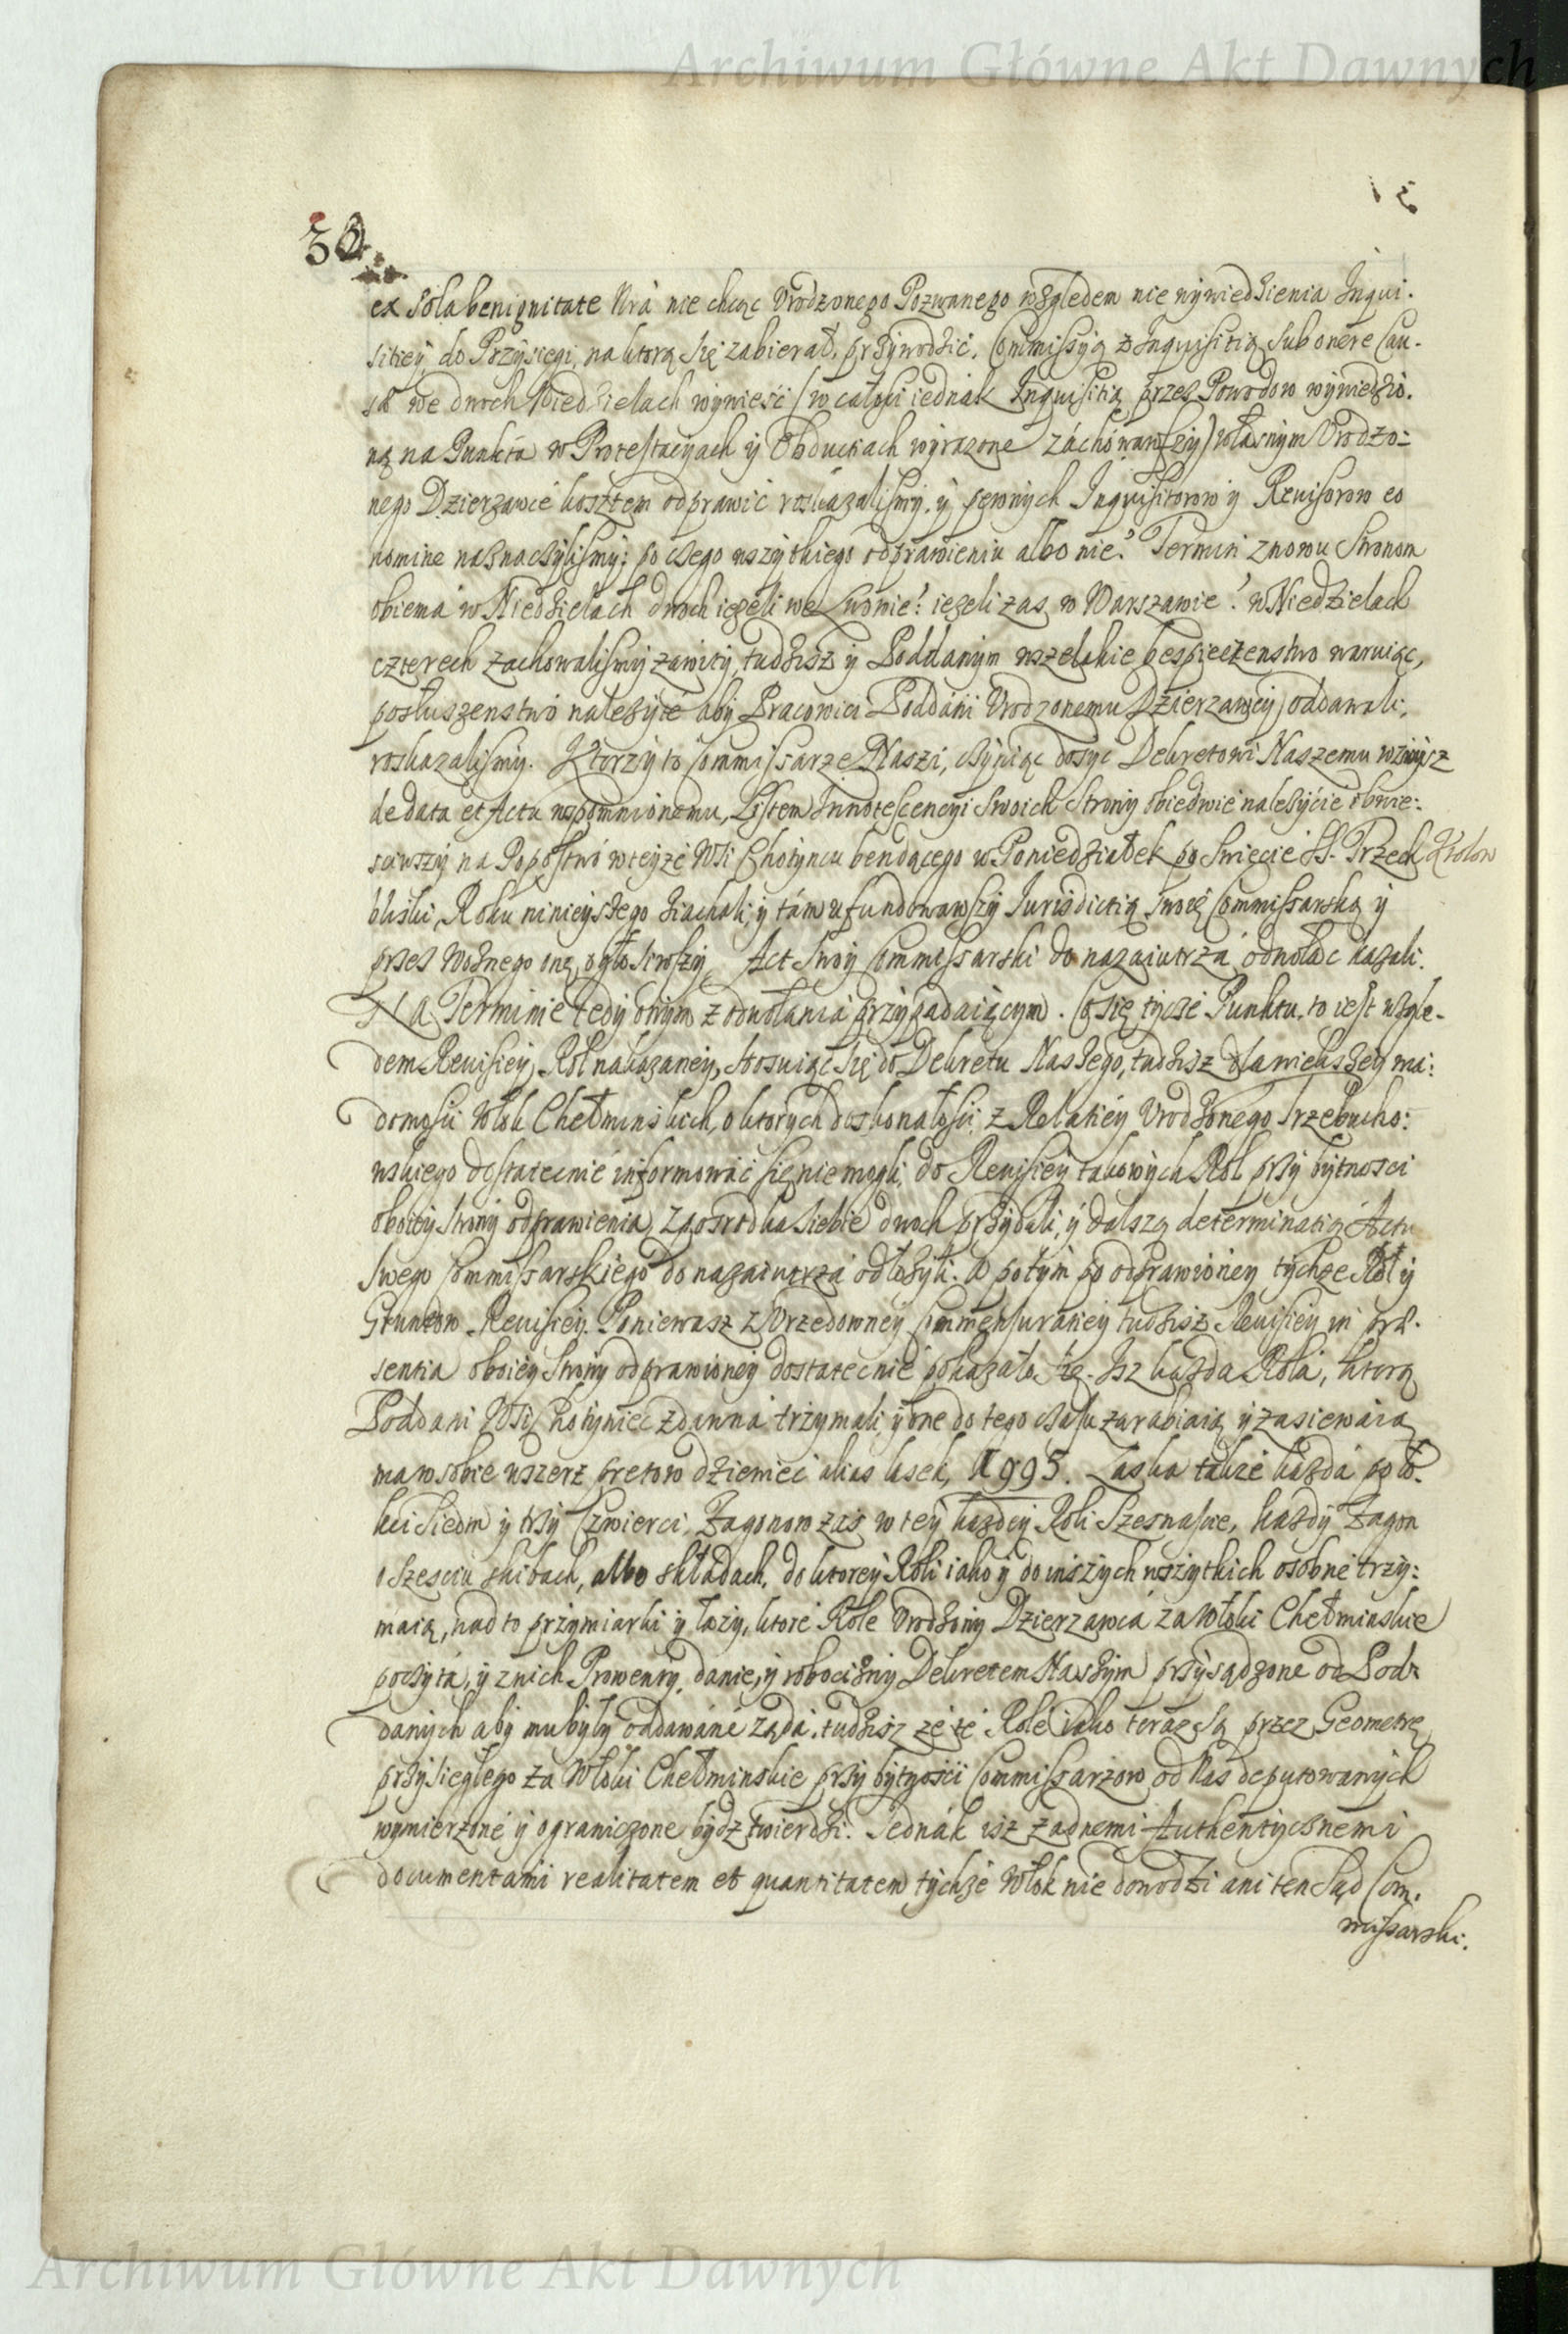 Archiwum Główne Akt Dawnych
30
ex sola benignitate Nra nie chcąc Vrodzonego Pozwanego względem nie wywiedzienia Inqui-
sitiey do Przysięgi, na ktorą się zabierał, przywodzić, Commissyą z Inquisitią sub onere Cau-
sæ we dwoch Niedzielach wywieść (w całosci iednak Inquisitią przez Powodow wywiedzio-
ną na Punkta w Protestacyach y Obductach wyrazone zachowawszy) własnym Vrodzo-
nego Dzierzawcé kosztem odprawić roskazalismy, y pewnych Inquisitorow y Reuisorow eo
nomine naznaczylismy; po czego wszytkiego odprawieniu albo nie? Termin znowu Stronom
obiema w Niedzielach dwoch iezeli we Lwowie? iezeli zas w Warszawie? w Niedzielach
czterech zachowalismy zawity, tudzisz y Poddanym wszelakie bespieczenstwo waruiąc,
posłuszenstwo nalezyte aby Pracowici Poddani Vrodzonemu Dzierzawcy oddawali,
roskazalismy. Ktorzy to Commissarze Naszi, czyniąc dosyc Dekretowi Naszemu wzwysz
de data et Actu wspomnionemu, Listem Innotescencyi Swoich Strony obiedwie nalezycie obwie-
sciwszy na Popostwo w teyze Wsi Chotyncu bendącego w Poniedziałek po Swięcie SS. Trzech Krolow
bliski, Roku ninieyszego ziachali, y tám ufundowawszy Iurisdictią swoię Commissarską y
przez Woznego onę ogłosiwszy, Act Swoy Commissarski do nazaiutrza odwołac kazali.
Na Terminie tedy owym z odwołania przypadaiącym. Co się tycze Punktu, to iest wzglę-
dem Reuisiey Rol nakazaney, stosuiąc się do Dekretu Naszego, tudzisz dla wiekszey wia-
domosci Włok Chełminskich, o ktorych doskonałosci z Relatiey Vrodzonego Trzebucho-
wskiego dostatecnie informowac się nie mogli, do Reuisiey takowych Rol przy bytnosci
oboiey Strony odprawienia, z posrodka siebie dwoch przydali, y dalszą determinatią Actu
Swego Commissarskiego do nazaiutrza odłozyli. A potym po odprawioney tychze Rol y
Gruntow Reuisiey. Poniewasz z Vrzedowney Commensuraciey tudzisz Reuisiey in præ-
sentia oboiey Strony odprawioney dostatecnie pokazało się. Isz kazda Rola, ktorą
Poddani Wsi Chotyniec zdawna trzymali y one do tego czasu zarabiaią y zasiewaią
ma w sobie wszerz pretow dziewieć alias lasek, N 995. Laska takze kazda po ło-
kci Siedm y trzy Czwierci, Zagonow zas w tey kazdey Roli Szesnascie, kazdy Zagon
o szesciu skibach, albo składach, do ktorey Roli iako y do inszych wszytkich osobne trzy-
maią, nad to przymiarki y łozy, ktore Role Vrodzony Dzierzawca za Włoki Chełminskie
poczyta, y z nich Prowenty, danie, y robocizny Dekretem Naszym przysądzone od Pod-
danych aby mu były oddawane ząda, tudzisz ze te Role iako teraz są przez Geometrę
przysięgłego za Włoki Chełminskie przy bytnosci Commissarzow od Nas deputowanych
wymierzone y ograniczone bydz twierdzi. Iednak isz zadnemi Authentycznemi
documentami realitatem et quantitatem tychze Włok nie dowodzi ani ten Sąd Com-
missarski.
Archiwum Główne Akt Dawnych